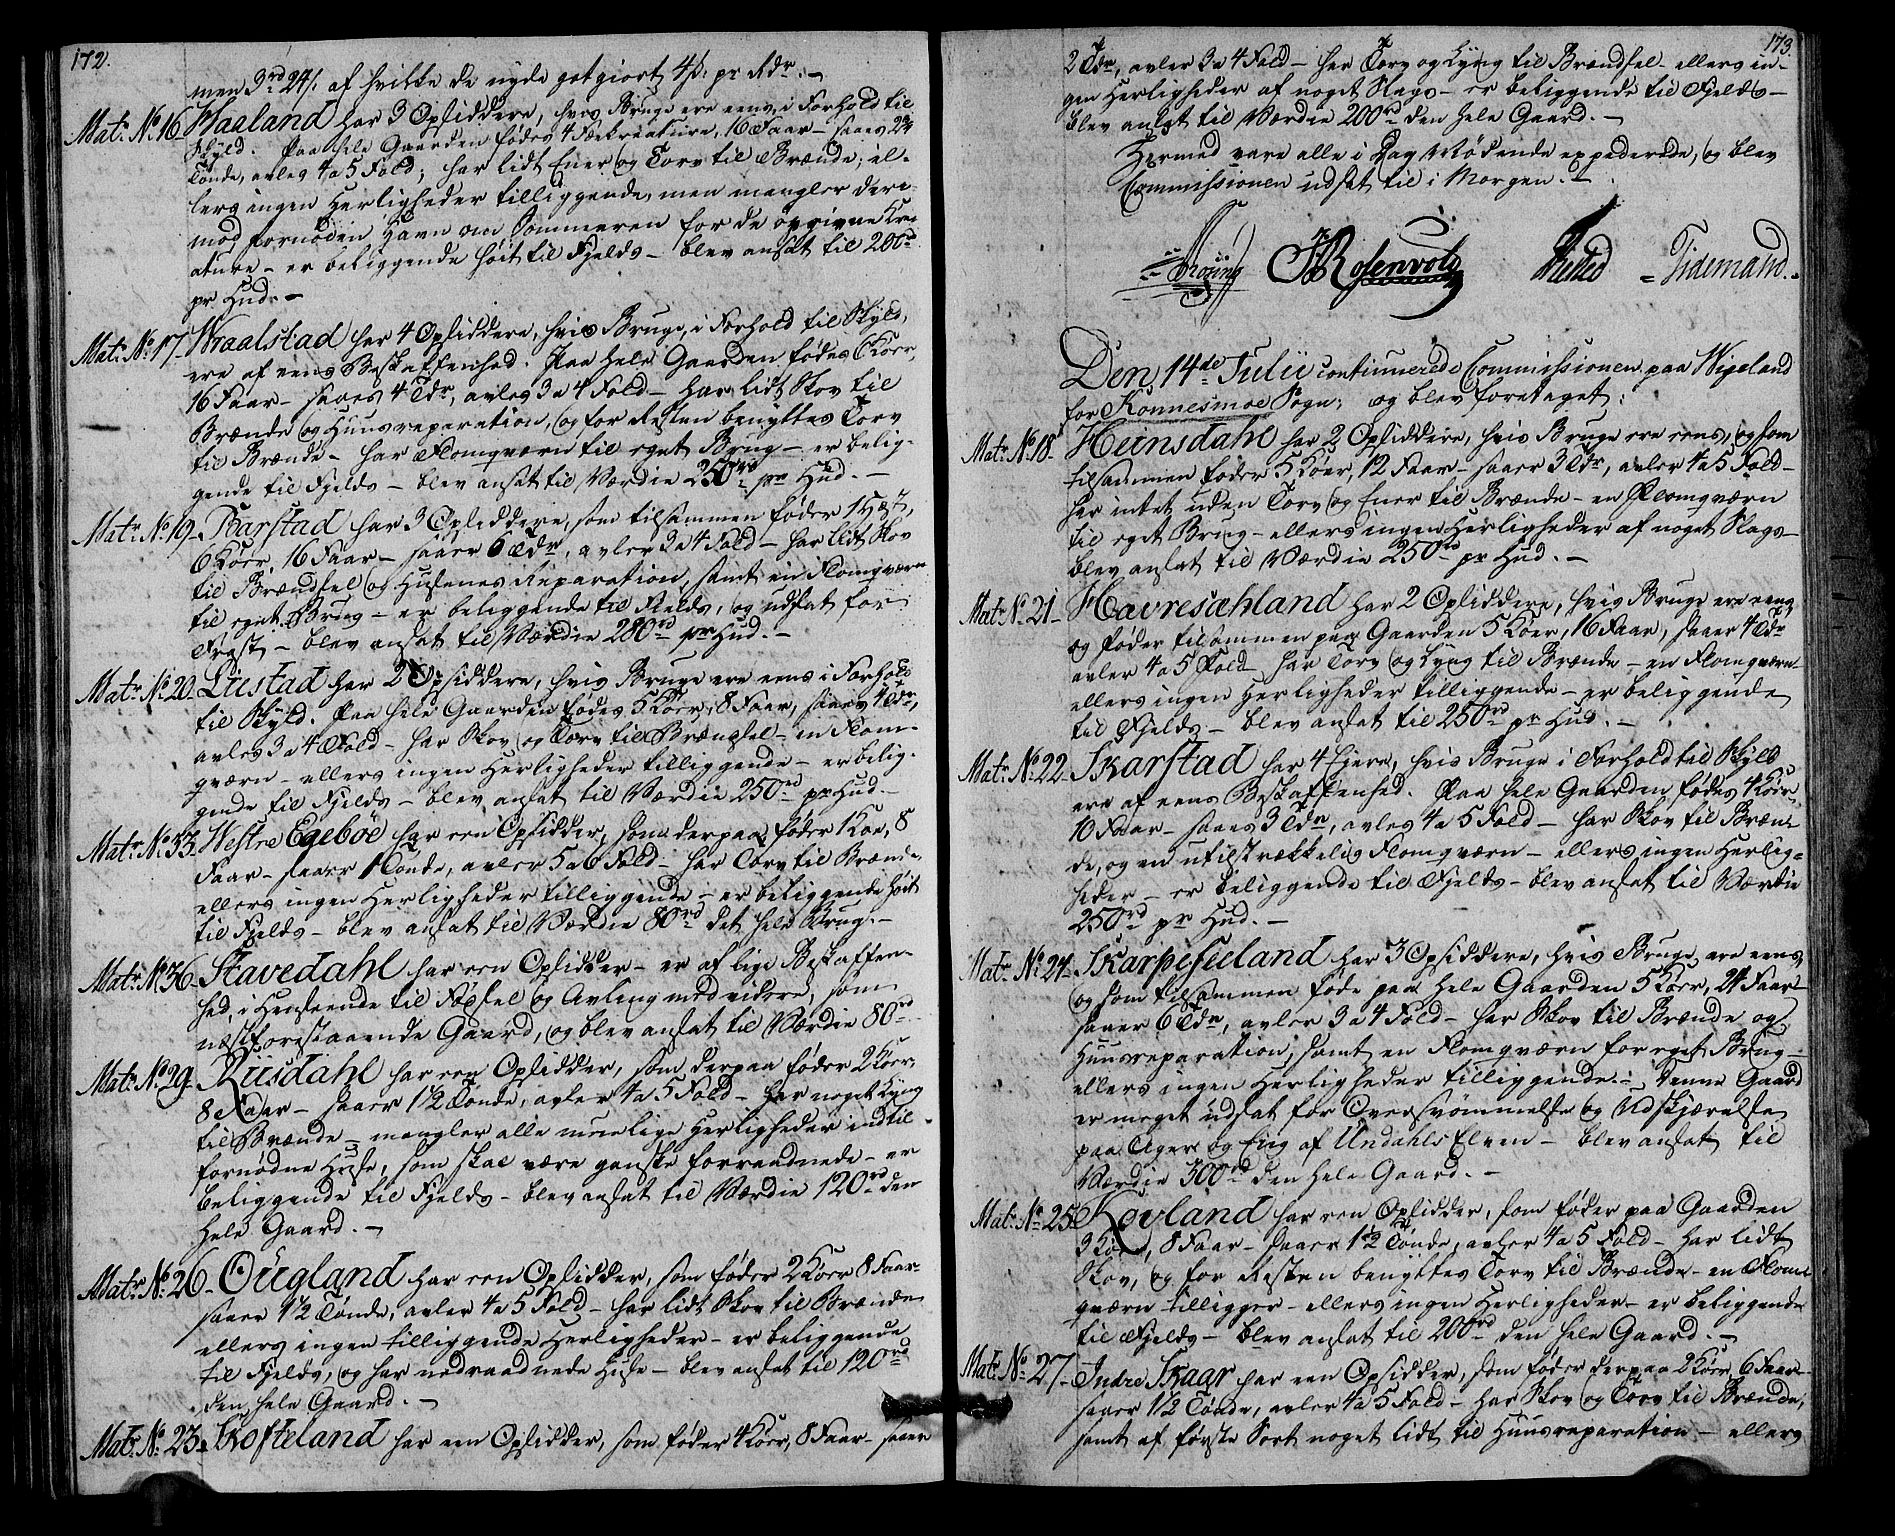 172.
men 3rd 24s. af hvilke de nyde gotgiort 4s. pr Rdr. —
Matr. No. 16 Haaland har 3 Opsiddere, hvis Bruge ere eens i Forhold til
Skyld. Paa hele Gaarden födes 4 Fækreature, 16 Faar — saaes 2¾
Tönde, avles 4 a 5 Fold; har lidt Ener og Torv til Brænde; el-
lers ingen Herligheder tilliggende, men mangler deri-
mod fornöden Havn om Sommeren for de opgivne Kre-
ature — er beliggende höit til Fjelds — blev ansat til 200rd
pr Hud. —
Matr. No. 17 Wraalstad har 4 Opsiddere, hvis Bruge, i Forhold til Skyld,
ere af eens Beskaffenhed. Paa hele Gaarden födes 6 Köer,
16 Faar — saaes 4 Tdr, avles 3 a 4 Fold — har lidt Skov til
Brænde og Huusreparation, og for Resten benyttes Torv
til Brænde — har Flomqværn til eget Brug — er belig-
gende til Fjelds — blev ansat til Værdie 250rd pr Hud. —
Matr. No. 19. Tarstad har 3 Opsiddere, som tilsammen föder 1 Hest,
6 Köer, 16 Faar — saaer 6 Tdr, avler 3 a 4 Fold — har lidt Skov
til Brændsel og Husenes Reparation, samt en Flomqværn
til eget Brug — er beliggende til Fjelds, og udsat for
Frost — blev ansat til Værdie 280rd pr Hud. —
Matr. No. 20. Liestad har 2 Opsiddere, hvis Bruge ere eens i Forhold
til Skyld. Paa hele Gaarden födes 5 Köer, 8 Faar, saaes 4 Tdr,
avles 3 a 4 Fold — har Skov og Torv til Brændsel — en Flom-
qværn — ellers ingen Herligheder tilliggende — er belig-
gende til Fjelds — blev ansat til Værdie 250rd pr Hud. —
Matr. No. 33. Westre Egeböe har een Opsidder, som derpaa föder 1 Koe, 8
Faar — saaer 1 Tönde, avler 5 a 6 Fold — har Torv til Brænde,
ellers ingen Herligheder tilliggende — er beliggende höit
til Fjelds — blev ansat til Værdie 80rd det hele Brug. —
Matr. No. 36. Stavedahl har een Opsidder — er af lige Beskaffen-
hed, i Henseende til Födsel og Avling med videre, som
næstforestaaende Gaard, og blev ansat til Værdie 80rd.
Matr. No. 29. Riisdahl har een Opsidder, som derpaa föder 2 Köer,
8 Faar — saaer 1½ Tönde, avler 4 a 5 Fold — har noget Lyng
til Brænde — mangler alle muelige Herligheder indtil
fornödne Huse, som skal være ganske forraadnede — er
beliggende til Fjelds — blev ansat til Værdie 120rd den
hele Gaard. —
Matr. No. 26. Öugland har een Opsidder, som föder 2 Köer 8 Faar
saaer 1½ Tönde, avler 4 a 5 Fold — har lidt Skov til Brænde
ellers ingen tilliggende Herligheder — er beliggende
til Fjelds, og har nedraadnede Huse — blev ansat til 120rd
den hele Gaard. —
Matr. No. 23. Skofteland har een Opsidder, som föder 4 Köer, 8 Faar — saaer
173.
2 Tdr, avler 3 a 4 Fold — har Torv og Lyng til Brændsel — ellers in-
gen Herligheder af noget Slags — er beliggende til Fjelds —
blev ansat til Værdie 200rd den hele Gaard. —
Hermed vare alle i Dag Mödende expederede, og blev
Commissionen udsat til i Morgen. —
JRosenvold Tidemand.
Den 14de Julii continuerede Commissionen paa Wigeland
for Konnesmoe Sogn; og blev foretaget:
Matr. No. 18. Heinsdahl har 2 Opsiddere, hvis Bruge ere eens, og som
tilsammen föder 5 Köer, 12 Faar — saaer 3 Tdr, avler 4 a 5 Fold —
har intet uden Torv og Ener til Brænde — en Flomqværn
til eget Brug — ellers ingen Herligheder af noget Slags —
blev ansat til Værdie 250rd pr Hud. —
Matr. No. 21. Havresæhland har 2 Opsiddere, hvis Bruge ere eens
og föder tilsammen paa Gaarden 5 Köer, 16 Faar, saaer 4 Tdr
avler 4 a 5 Fold — har Torv og Lyng til Brænde — en Flomqværn
ellers ingen Herligheder tilliggende — er beliggende
til Fjelds — blev ansat til 250rd pr Hud. —
Matr. No. 22. Skarstad har 4 Eiere, hvis Bruge i Forhold til Skyld
ere af eens Beskaffenhed. Paa hele Gaarden födes 4 Köer,
10 Faar — saaes 3 Tdr, avles 4 a 5 Fold — har Skov til Bræn-
de, og en utilstrækkelig Flomqværn — ellers ingen Herlig-
heder — er beliggende til Fjelds — blev ansat til Værdie
250rd pr Hud. —
Matr. No. 24. Skarpeseland har 3 Opsiddere, hvis Bruge ere eens,
og som tilsammen föde paa hele Gaarden 5 Köer, 24 Faar —
saaer 6 Tdr, avler 3 a 4 Fold — har Skov til Brænde og
Huusreparation, samt en Flomqværn for eget Brug —
ellers ingen Herligheder tilliggende. — Denne Gaard
er meget udsat for Oversvömmelse og Udskjærelse
paa Ager og Eng af Undahls Elven — blev ansat til
Værdie 300rd den hele Gaard. —
Matr. No. 25. Kovland har een Opsidder, som föder paa Gaarden
3 Köer, 8 Faar — saaer 1½ Tönde, avler 4 a 5 Fold — har lidt
Skov, og for Resten benyttes Torv til Brænde — en Flom-
qværn tilligger — ellers ingen Herligheder — er beliggende
til Fjelds — blev ansat til 200rd den hele Gaard. —
Matr. No. 27. Indre Skaar har een Opsidder, som föder derpaa 2 Köer, 6 Faar —
saaer 1½ Tönde, avler 4 a 5 Fold — har Skov og Torv til Brænde,
samt af förste Sort noget lidt til Huusreparation — ellers